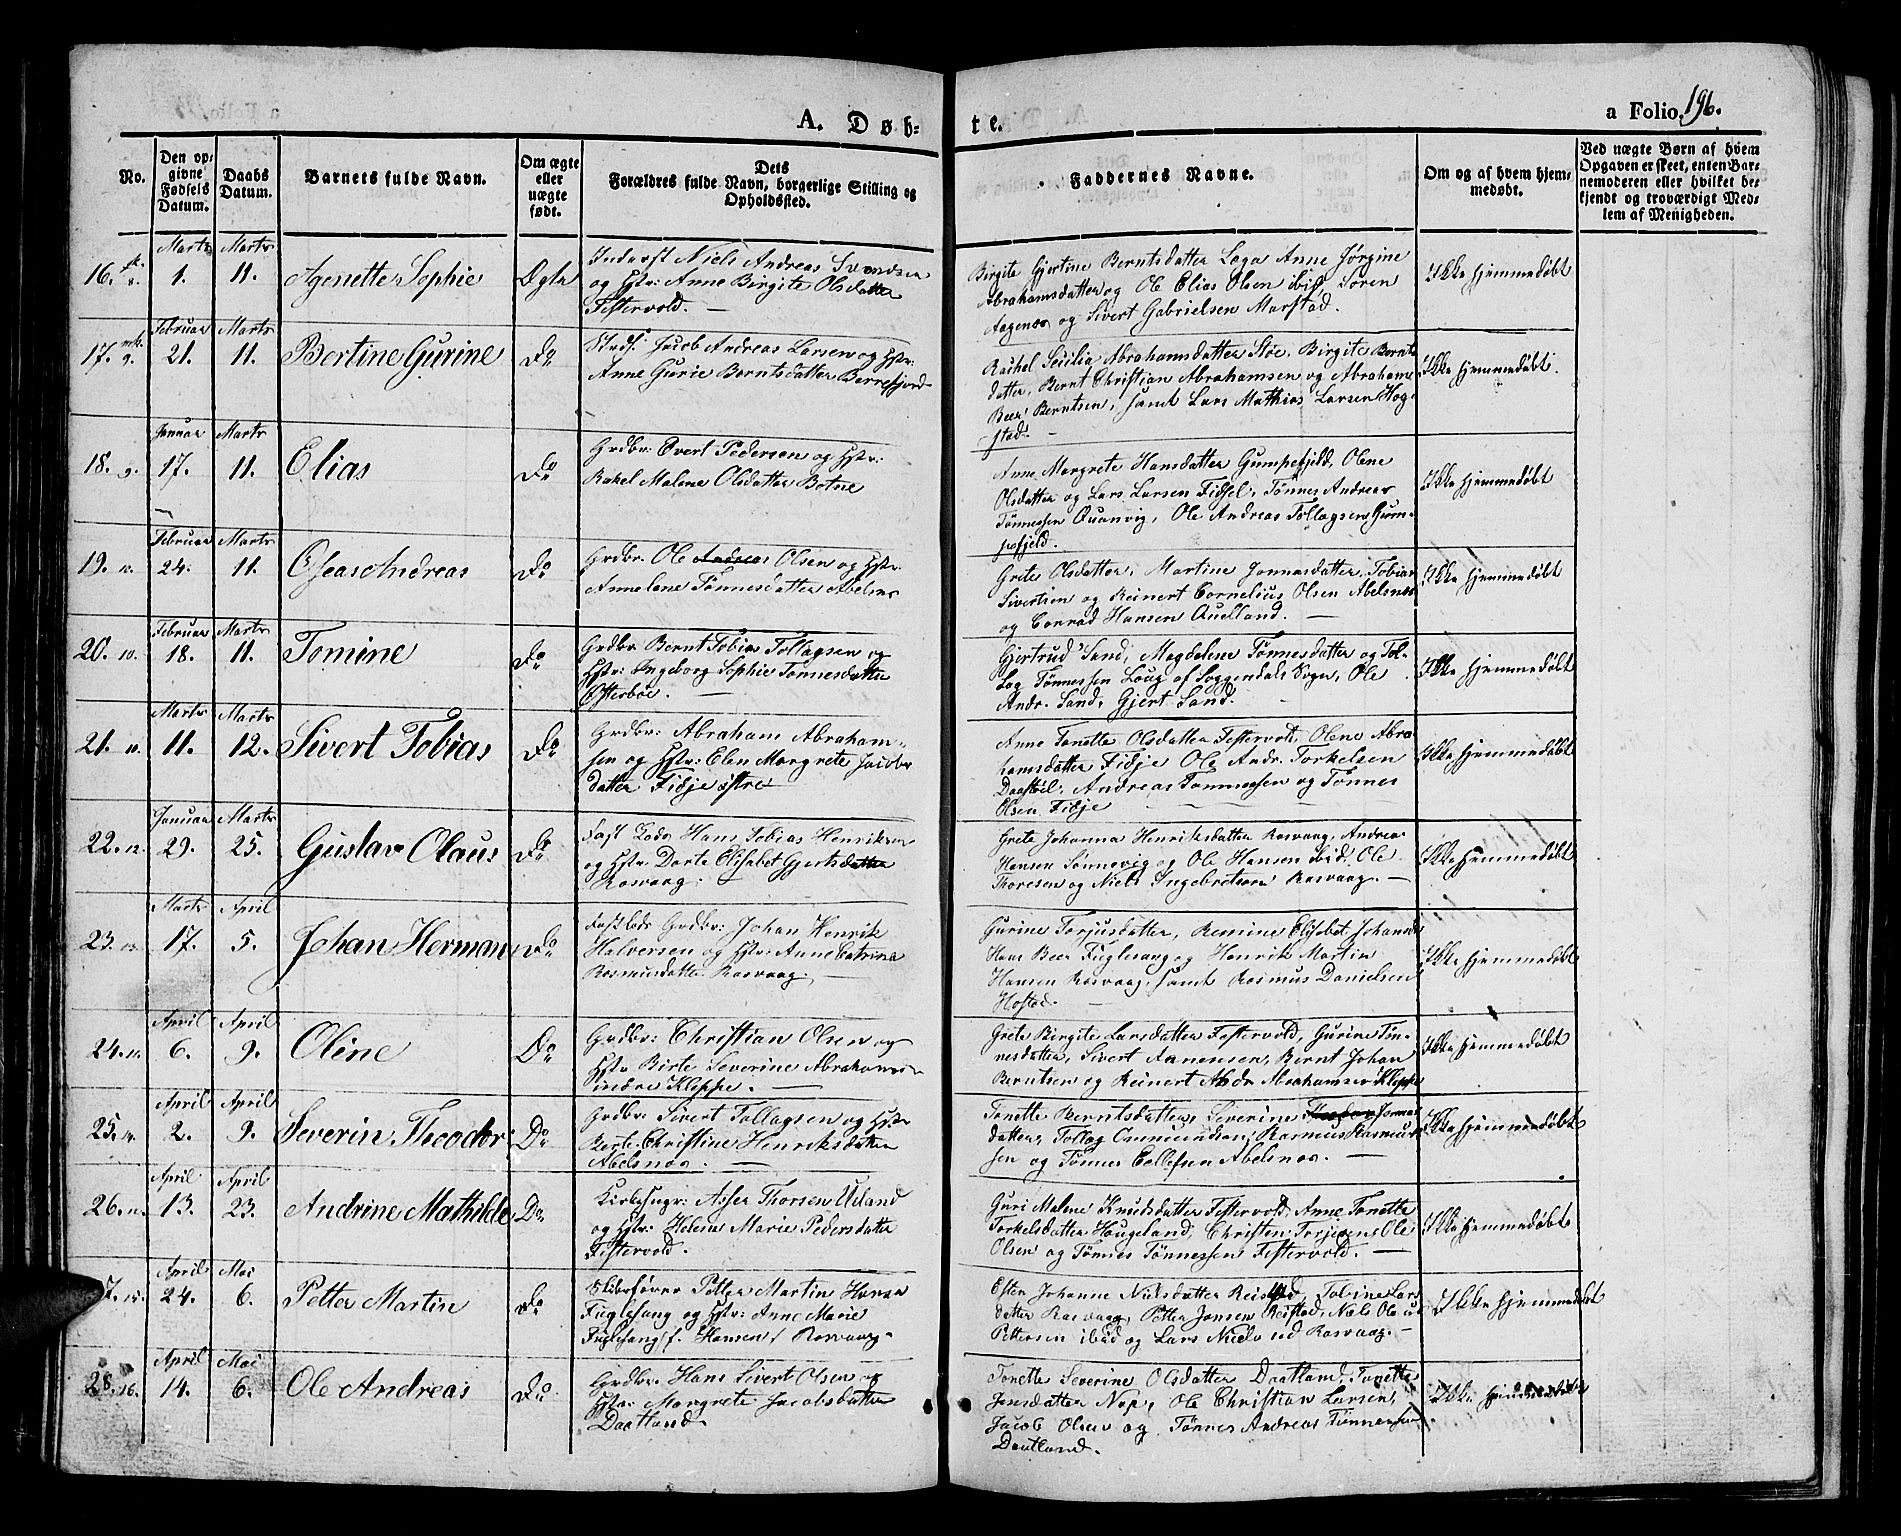 A. Døb-
te.
a Folio 196.
No.
Den op-
givne
Fødsels
Datum.
Daabs
Datum.
Barnets fulde Navn.
Om ægte
eller
uægte
født.
Dets
Forældres fulde Navn, borgerlige Stilling og
Opholdssted.
Faddernes Navne.
Om og af hvem hjem-
medøbt.
Ved uægte Børn af hvem
Opgaven er skeet, enten Bar-
nemoderen eller hvilket be-
kjendt og troværdigt Med-
lem af Menigheden.
16. 8. Marts 1. Marts 11. Agenette Sophie Ægte
Niels Andreas Svendsen
og Hstr: Anne Birgite Olsdatter
Festervold.
Birgite Gjertine Berntsdatter Loga Anne Jørgine
Abrahamsdatter og Ole Elias Olsen ibid, Sören
Aagenæs og Sivert Gabrielsen Marstad.
Ikke hjemmedøbt
17. 9. Februar 21. Marts 11. Bertine Gurine Do
Jacob Andreas Larsen og Hstr:
Anne Gurie Berntsdatter Berrefjord
Rachel Secilia Abrahamsdatter Støe, Birgite Bernts-
datter, Bernt Christian Abrahamsen og Abraham
Beer Berntsen, samt Lars Mathias Larsen Hog-
stad.
Ikke hjemmedøbt.
18. 9. Januar 17. Marts 11. Elias Do
Grdbr: Evert Pedersen og Hstr:
Rakel Malene Olsdatter Botne
Anne Margrete Hansdatter Gumpefjeld, Olene
Olsdatter og Lars Larsen Fidsel, Tönnes Andreas
Tönnessen Quanvig, Ole Andreas Tollagsen Gum-
pefjeld.
Ikke hjemmedøbt
19. 10. Februar 24. Marts 11. Oseas Andreas Do
Grdbr: Ole Andreas Olsen og Hstr:
Annelene Tönnesdatter Abelsnes
Grete Olsdatter, Martine Jonnasdatter, Tobias
Sivertsen og Reinert Cornelius Olsen Abelsnes
og Conrad Hansen Quelland.
Ikke hjemmedøbt
20. 10. Februar 18. Marts 11. Tomine Do
Grdbr Bernt Tobias Tollagsen og
Hstr: Ingeborg Sophie Tönnesdatter
Østerböe.
Gjertrud Sand, Magdelene Tönnesdatter og Tol-
lag Tönnessen Loug af Soggendals Sogn, Ole
Andr. Sand, Gjert Sand.
Ikke hjemmedøbt
21. 10. Marts 11. Marts 12. Sivert Tobias Do
Grdbr: Abraham Abraham-
sen og Hstr: Elen Margrete Jacobs
datter Fidje østre
Anne Tonette Olsdatter Festervold, Olene Abra
hamsdatter Fidje Ole Andr. Torkelsen
Daastöl, Andreas Tönnessen og Tönnes
Olsen Fidje
Ikke hjemmedøbt
22. 12. Januar 29. Marts 25. Gustav Olaus Do
Fast Lods Hans Tobias Henriksen
og Hstr Dorte Elisabet Gjertsdatter
Rasvaag.
Grete Johanna Henriksdatter Rasvaag, Andreas
Hansen Sönnevig og Ole Hansen ibid, Ole
Thoresen og Niels Ingebretsen Rasvaag.
Ikke hjemmedøbt
23. 13. Marts 17. April 5. Johan Herman Do
Fastlods Grdbr: Johan Henrik
Halversen og Hstr: Anne Catrine
Rasmusdatter Rasvaag.
Gurine Torjusdatter, Remine Elisabet Johannes
Hans Beer Fuglesang og Henrik Martin
Hansen Rasvaag, samt Rasmus Danielsen
Hostad.
Ikke hjemmedøbt
24. April 6. April 9. Oline Do
Grdbr: Christian Olsen og
Hstr Birte Severine Abrahams
indre Kleppe.
Grete Birgite Larsdatter Festervold, Gurine Tön-
nesdatter, Sivert Aanensen, Bernt Johan
Berntsen og Reinert Andr Abrahamsen Kleppe
Ikke hjemmedøbt
25. April 2. April 9. Severin Theodor Do
Grdbr: Sivert Tollagsen og Hstr
Berte Christine Henriksdatter
Abelsnes.
Tonette Berntsdatter, Severine Jonnas
datter, Tollag Ommundsen, Rasmus Rasmus-
sen og Tönnes Eellefsen Abelsnes.
Ikke hjemmedøbt
26. April 13. April 23. Andrine Mathilde Do
Kirkesngr: Asser Thorsen Ueland
og Hstr: Helene Marie Pedersdatter
Festervold.
Guri Malene Knudsdatter Festervold, Anne Tonette
Torkelsdatter Haugeland, Christen Torjesen, Ole
Olsen og Tönnes Tönnessen Festervold.
Ikke hjemmedøbt
7. 15. April 24. Mai 6. Petter Martin Do
Skibsförer Petter Martin Hansen
Fuglesang og Hstr: Anne Marie
Fuglesang f. Hansen / Rasvaag.
Ester Johanne Nielsdatter Reistad, Toline Lars
datter Rasvaag, Petter Jensen Reistad, Niels Olaus
Pettersen ibid og Lars Niels ud Rasvaag.
Ikke hjemmedøbt
28. 16. April 14. Mai 6. Ole Andreas Do
Grdbr. Hans Sivert Olsen og
Hstr: Margrete Jacobsdatter
Daatland
Tonette Severine Olsdatter Daatland, Tonette
Jensdatter Nep, Ole Christian Larsen,
Jacob Olsen og Tönnes Andreas Tönnessen
Daatland.
Ikke hjemmedøbt